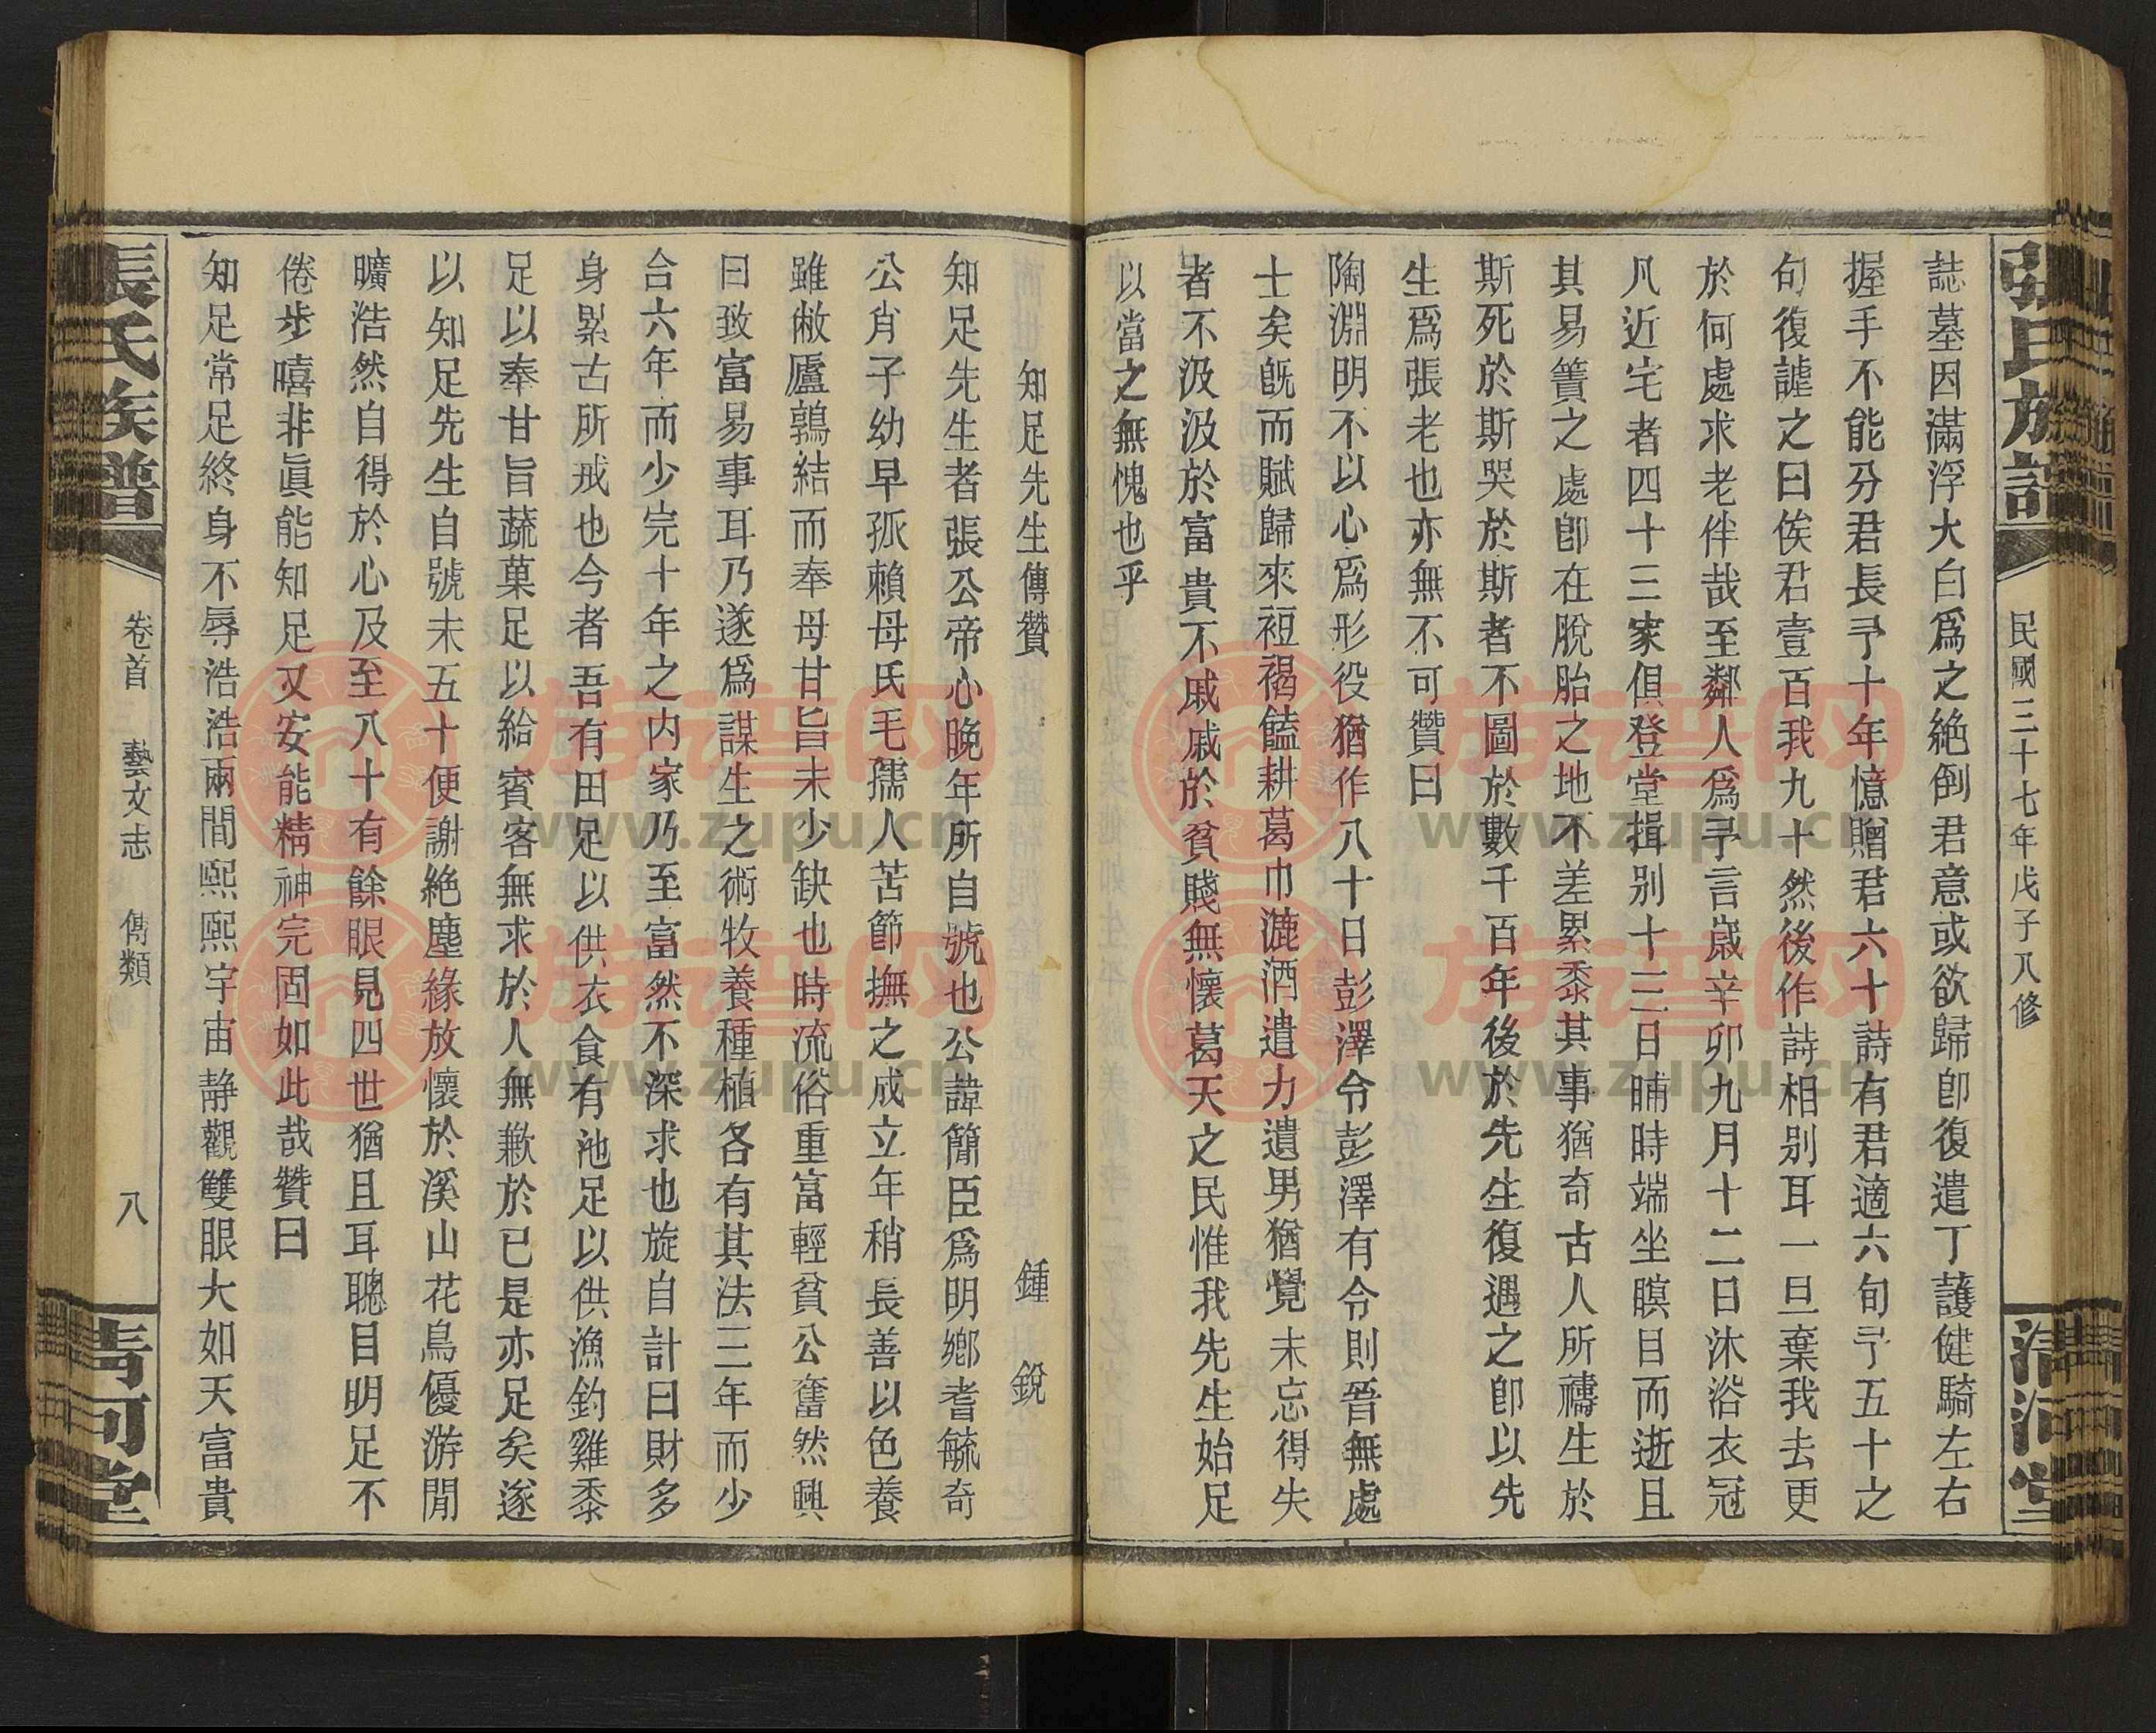 張氏族譜
民國三十七年戊子八修
清河堂
誌墓因滿浮大白爲之絶倒君意或欲歸卽復遣丁護健騎左右
握手不能分君長予十年憶贈君六十詩有君適六旬予五十之
句復謔之曰俟君壹百我九十然後作詩相別耳一旦棄我去更
於何處求老伴哉至鄰人爲予言歲辛卯九月十二日沐浴衣冠
凡近宅者四十三家俱登堂揖别十三日晡時端坐瞑目而逝且
其易簀之處卽在脫胎之地不差累黍其事猶奇古人所禱生於
斯死於斯哭於斯者不圖於數千百年後於先生復遇之卽以先
生爲張老也亦無不可贊曰
陶淵明不以心爲形役猶作八十日彭澤令彭澤有令則晉無處
士矣旣而賦歸來裋褐饁耕葛巾漉酒遣力遺男猶覺未忘得失
者不汲汲於富貴不戚戚於貧賤無懷葛天之民惟我先生始足
以當之無愧也乎
知足先生傳贊 鍾銳
知足先生者張公帝心晚年所自號也公諱簡臣爲明鄉耆毓奇
公肖子幼早孤賴母氏毛孺人苦節撫之成立年稍長善以色養
雖敝廬鶉結而奉母甘旨未少缺也時流俗重富輕貧公奮然興
曰致富易事耳乃遂爲謀生之術牧養種植各有其法三年而少
合六年而少完十年之内家乃至富然不深求也旋自計曰財多
身累古所戒也今者吾有田足以供衣食有池足以供漁釣雞黍
足以奉甘旨蔬菓足以給賓客無求於人無歉於已是亦足矣遂
以知足先生自號未五十便謝絶塵緣放懷於溪山花鳥優游閒
曠浩然自得於心及至八十有餘眼見四世猶且耳聰目明足不
倦步嘻非眞能知足又安能精神完固如此哉贊曰
知足常足終身不辱浩浩兩間熙熙宇宙静觀雙眼大如天富貴
張氏族譜
卷首 藝文志 傳類
八
清河堂
族谱网
www.zupu.cn
族谱网
www.zupu.cn
族谱网
www.zupu.cn
族谱网
www.zupu.cn